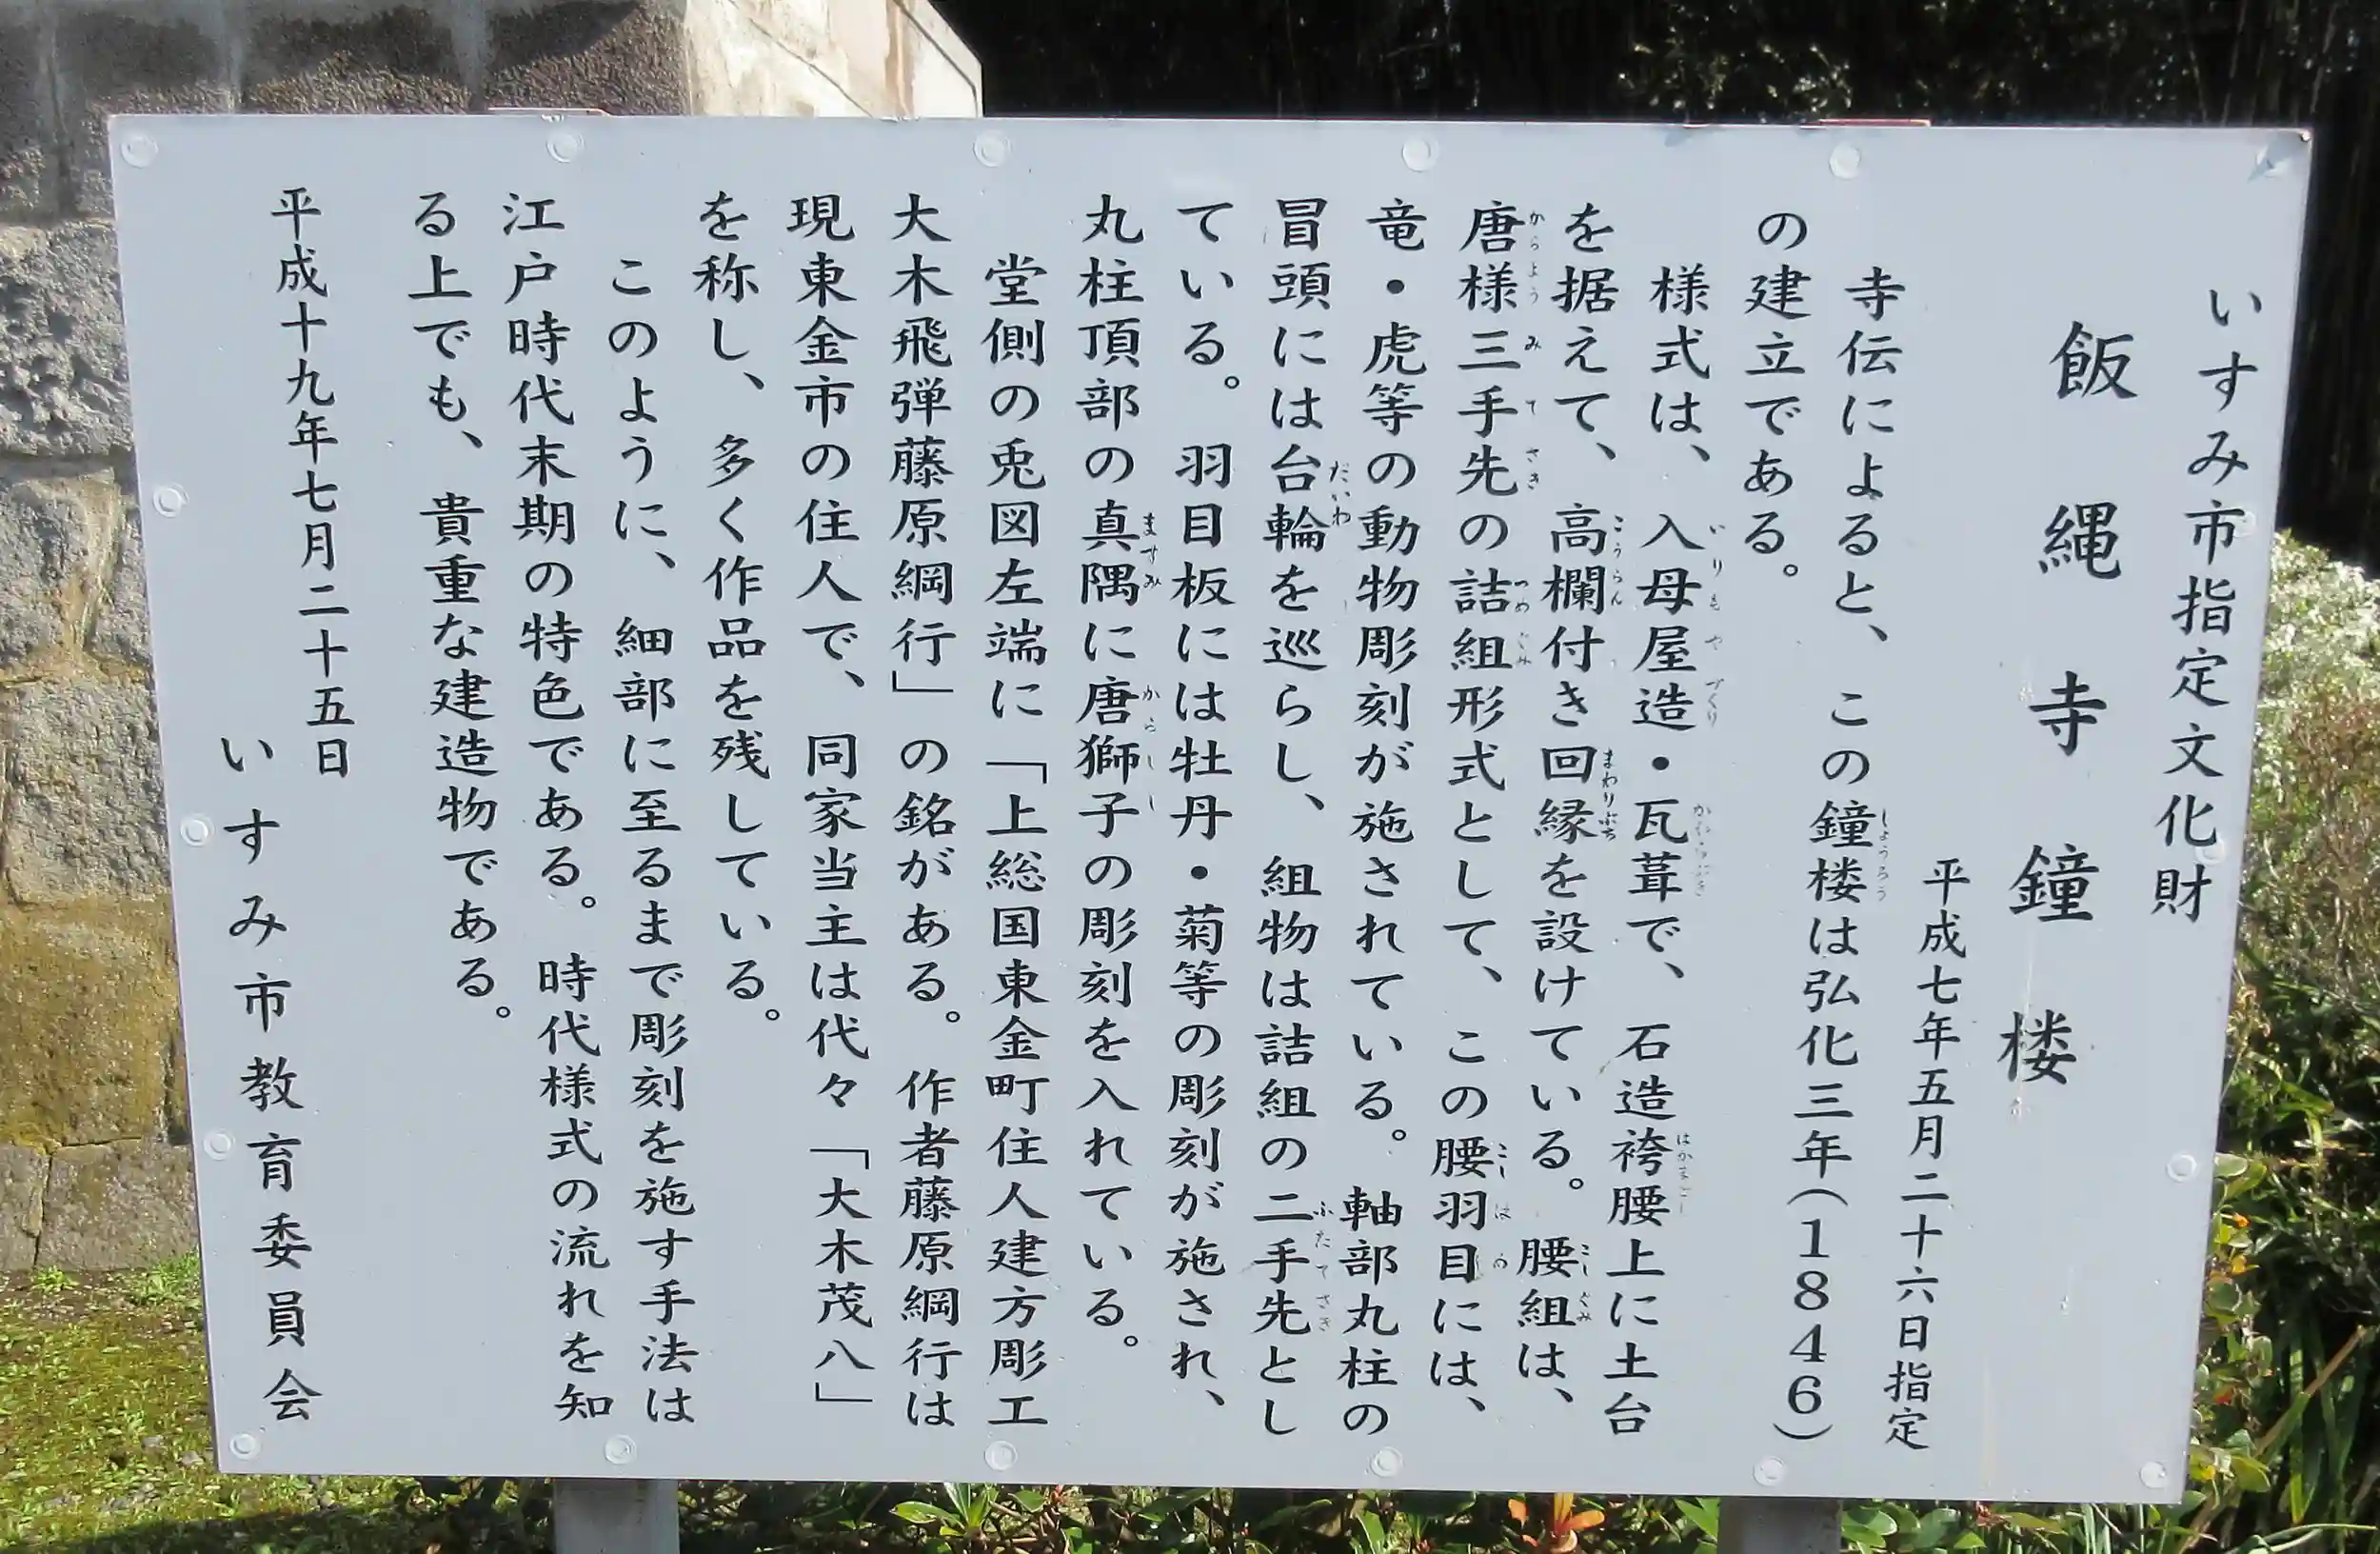 いすみ市指定文化財
飯縄寺鐘楼
平成七年五月二十六日指定
寺伝によると、この鐘楼は弘化三年(1846)
の建立である。
様式は、入母屋造・瓦葺で、石造袴腰上に土台
を据えて、高欄付き回縁を設けている。腰組は、
唐様三手先の詰組形式として、この腰羽目には、
竜・虎等の動物彫刻が施されている。軸部丸柱の
冒頭には台輪を巡らし、組物は詰組の二手先とし
ている。羽目板には牡丹・菊等の彫刻が施され、
丸柱頂部の真隅に唐獅子の彫刻を入れている。
堂側の兎図左端に「上総国東金町住人建方彫工
大木飛弾藤原綱行」の銘がある。作者藤原綱行は
現東金市の住人で、同家当主は代々「大木茂八」
を称し、多く作品を残している。
このように、細部に至るまで彫刻を施す手法は
江戸時代末期の特色である。時代様式の流れを知
る上でも、貴重な建造物である。
平成十九年七月二十五日
いすみ市教育委員会